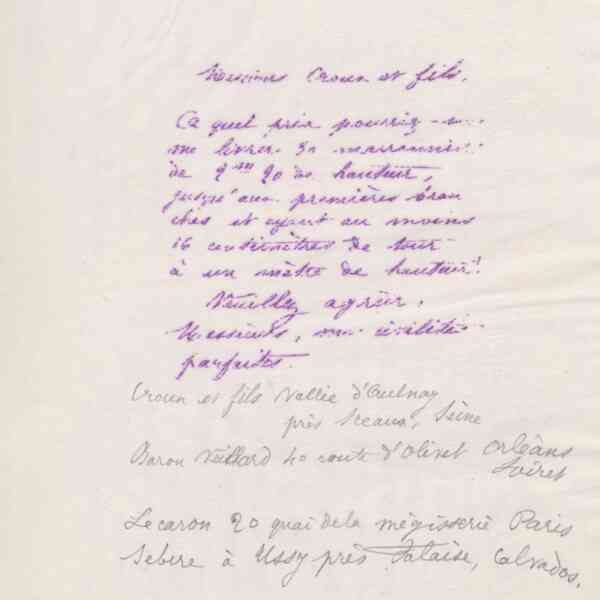 Messieurs Croux et fils,
A quel prix pourriez-vous
me livrer 30 marronniers
de 2m 20 de hauteur,
jusqu'aux premières bran
ches et ayant au moins
16 centimètres de tour
à un mètre de hauteur?
Veuillez agréer,
Messieurs, mes civilités
parfaites.
Croux et fils Vallée d'Aulnay
près Sceaux, Seine
Baron Veillard 40 route d'Olivet Orléans
Loiret
Lecaron 20 quai de la mégisserie Paris
Sebire à Ussy près Falaise, Calvados.